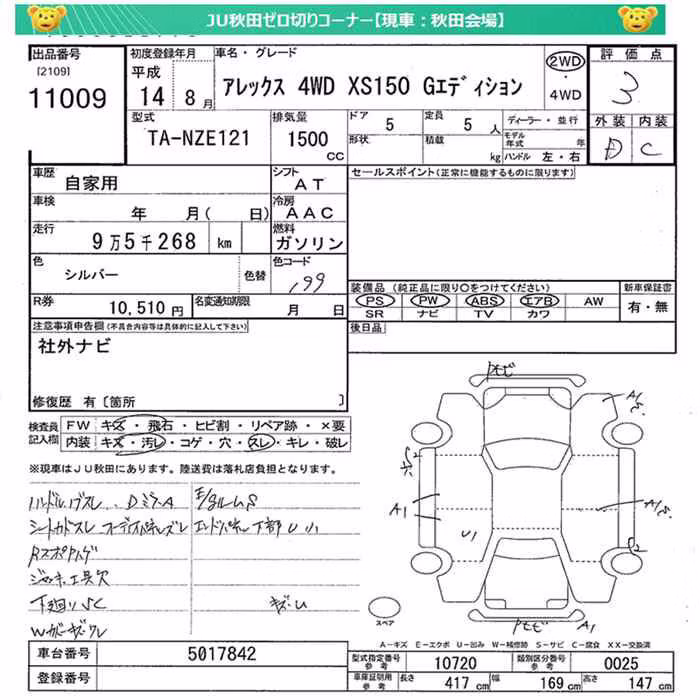 JU秋田ゼロ切りコーナー【現車：秋田会場】
出品番号
[2109]
11009
初度登録年月
平成
14 8月
車名・グレード
アレックス 4WD XS150 Gエディション
2WD
・
4WD
評価点
3
外装 内装
D C
型式
TA-NZE121
排気量
1500
CC
ドア 5
定員 5人
形状
積載 kg
ディーラー・並行
モデル年式 年
ハンドル 左・右
車歴
自家用
シフト
AT
車検
年 月( 日)
冷房
AAC
走行
9万5千268 km
燃料
ガソリン
色
シルバー
色替
色コード
199
R券
10,510円
名変通知期限
月 日
セールスポイント(正常に機能するものに限ります)
装備品 (純正品に限り○をつけてください)
PS PW ABS エアB AW
SR ナビ TV カワ
新車保証書
有・無
後日品
注意事項申告欄(不具合内容等は具体的に記入して下さい)
社外ナビ
修復歴 有〔箇所 〕
検査員
記入欄
FW キズ・飛石・ヒビ割・リペア跡・×要
内装 キズ・汚レ・コゲ・穴・スレ・キレ・破レ
※現車はJU秋田にあります。陸送費は落札店負担となります。
ハンドル、ノブスレ
下廻りSC
キズ・U
A1
U1
S2
A1
スペア
A－キズ E－エクボ U－凹み W－補修跡 S－サビ C－腐食 XX－交換済
車台番号
5017842
登録番号
型式指定番号
参考
10720
類別区分番号
参考
0025
車庫証明用
参考
長さ 417 cm
幅 169 cm
高さ 147 cm